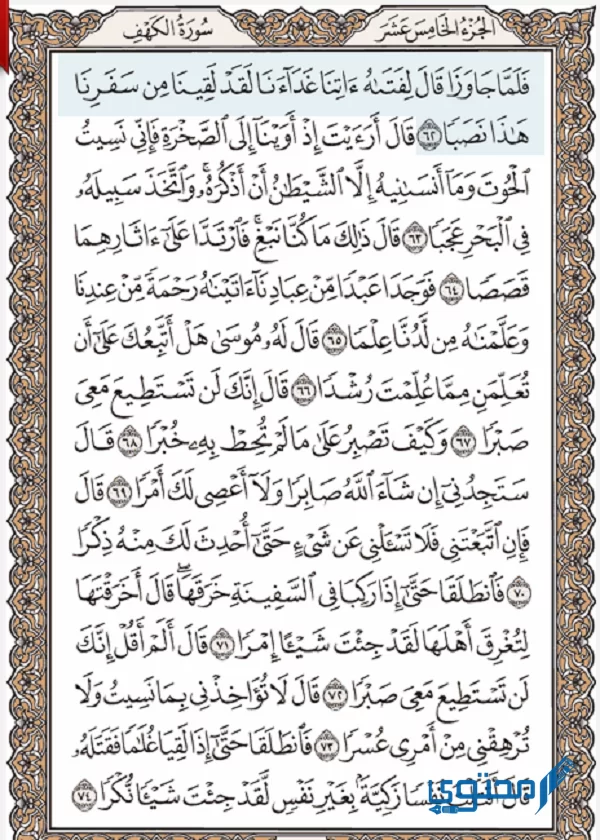 سُورَةُ الكَهْفِ
الجُزْءُ الخَامِسَ عَشَرَ
فَلَمَّا جَاوَزَا قَالَ لِفَتَىٰهُ ءَاتِنَا غَدَآءَنَا لَقَدْ لَقِينَا مِن سَفَرِنَا
هَٰذَا نَصَبًا ٦٢ قَالَ أَرَءَيْتَ إِذْ أَوَيْنَآ إِلَى ٱلصَّخْرَةِ فَإِنِّى نَسِيتُ
ٱلْحُوتَ وَمَآ أَنسَىٰنِيهُ إِلَّا ٱلشَّيْطَٰنُ أَنْ أَذْكُرَهُۥ ۚ وَٱتَّخَذَ سَبِيلَهُۥ
فِى ٱلْبَحْرِ عَجَبًا ٦٣ قَالَ ذَٰلِكَ مَا كُنَّا نَبْغِ ۚ فَٱرْتَدَّا عَلَىٰٓ ءَاثَارِهِمَا
قَصَصًا ٦٤ فَوَجَدَا عَبْدًا مِّنْ عِبَادِنَآ ءَاتَيْنَٰهُ رَحْمَةً مِّنْ عِندِنَا
وَعَلَّمْنَٰهُ مِن لَّدُنَّا عِلْمًا ٦٥ قَالَ لَهُۥ مُوسَىٰ هَلْ أَتَّبِعُكَ عَلَىٰٓ أَن
تُعَلِّمَنِ مِمَّا عُلِّمْتَ رُشْدًا ٦٦ قَالَ إِنَّكَ لَن تَسْتَطِيعَ مَعِىَ
صَبْرًا ٦٧ وَكَيْفَ تَصْبِرُ عَلَىٰ مَا لَمْ تُحِطْ بِهِۦ خُبْرًا ٦٨ قَالَ
سَتَجِدُنِىٓ إِن شَآءَ ٱللَّهُ صَابِرًا وَلَآ أَعْصِى لَكَ أَمْرًا ٦٩ قَالَ
فَإِنِ ٱتَّبَعْتَنِى فَلَا تَسْـَٔلْنِى عَن شَىْءٍ حَتَّىٰٓ أُحْدِثَ لَكَ مِنْهُ ذِكْرًا
٧٠ فَٱنطَلَقَا حَتَّىٰٓ إِذَا رَكِبَا فِى ٱلسَّفِينَةِ خَرَقَهَا ۖ قَالَ أَخَرَقْتَهَا
لِتُغْرِقَ أَهْلَهَا لَقَدْ جِئْتَ شَيْـًٔا إِمْرًا ٧١ قَالَ أَلَمْ أَقُلْ إِنَّكَ
لَن تَسْتَطِيعَ مَعِىَ صَبْرًا ٧٢ قَالَ لَا تُؤَاخِذْنِى بِمَا نَسِيتُ وَلَا
تُرْهِقْنِى مِنْ أَمْرِى عُسْرًا ٧٣ فَٱنطَلَقَا حَتَّىٰٓ إِذَا لَقِيَا غُلَٰمًا فَقَتَلَهُۥ
قَالَ أَقَتَلْتَ نَفْسًا زَكِيَّةًۢ بِغَيْرِ نَفْسٍ لَّقَدْ جِئْتَ شَيْـًٔا نُّكْرًا ٧٤
محتوى